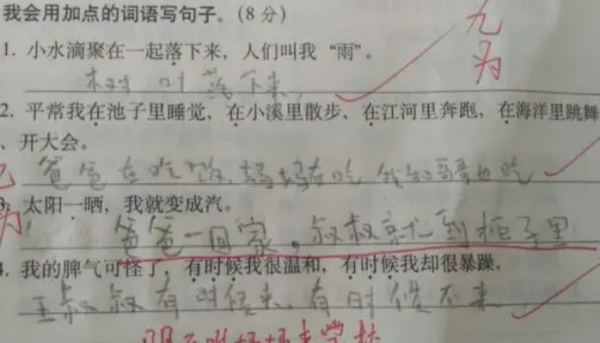 我会用加点的词语写句子。(8分)
1. 小水滴聚在一起落下来，人们叫我“雨”。
树叶落下来，
九
为
2. 平常我在池子里睡觉，在小溪里散步，在江河里奔跑，在海洋里跳舞
、开大会。
爸爸在吃饭，妈妈在吃 我和哥哥也吃
为
3. 太阳一晒，我就变成汽。
爸爸一回家，叔叔就到柜子里
4. 我的脾气可怪了，有时候我很温和，有时候我却很暴躁。
王叔叔有时候来，有时候不来